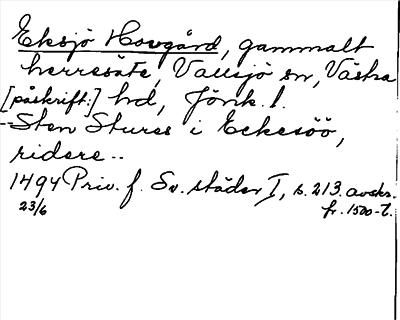 Eksjö Hovgård, gammalt
herresäte, Vallsjö sn, Västra
[påskrift:] hd, Jönk. l.
- Sten Stures i Eckesöö,
ridere..
1494 Priv. f. Sv. städer I, s. 213 avskr.
23/6 fr. 1500-t.